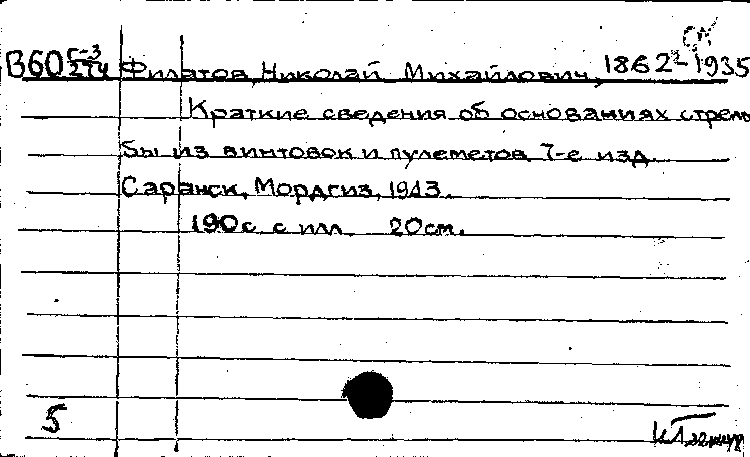 В60 Г-3/274 Филатов, Николай Михайлович, 1862-1935
Краткие сведения об основаниях стрель
бы из винтовок и пулеметов. 7-е изд.
Саранск, Мордгиз, 1943.
190с. с илл. 20см.
5